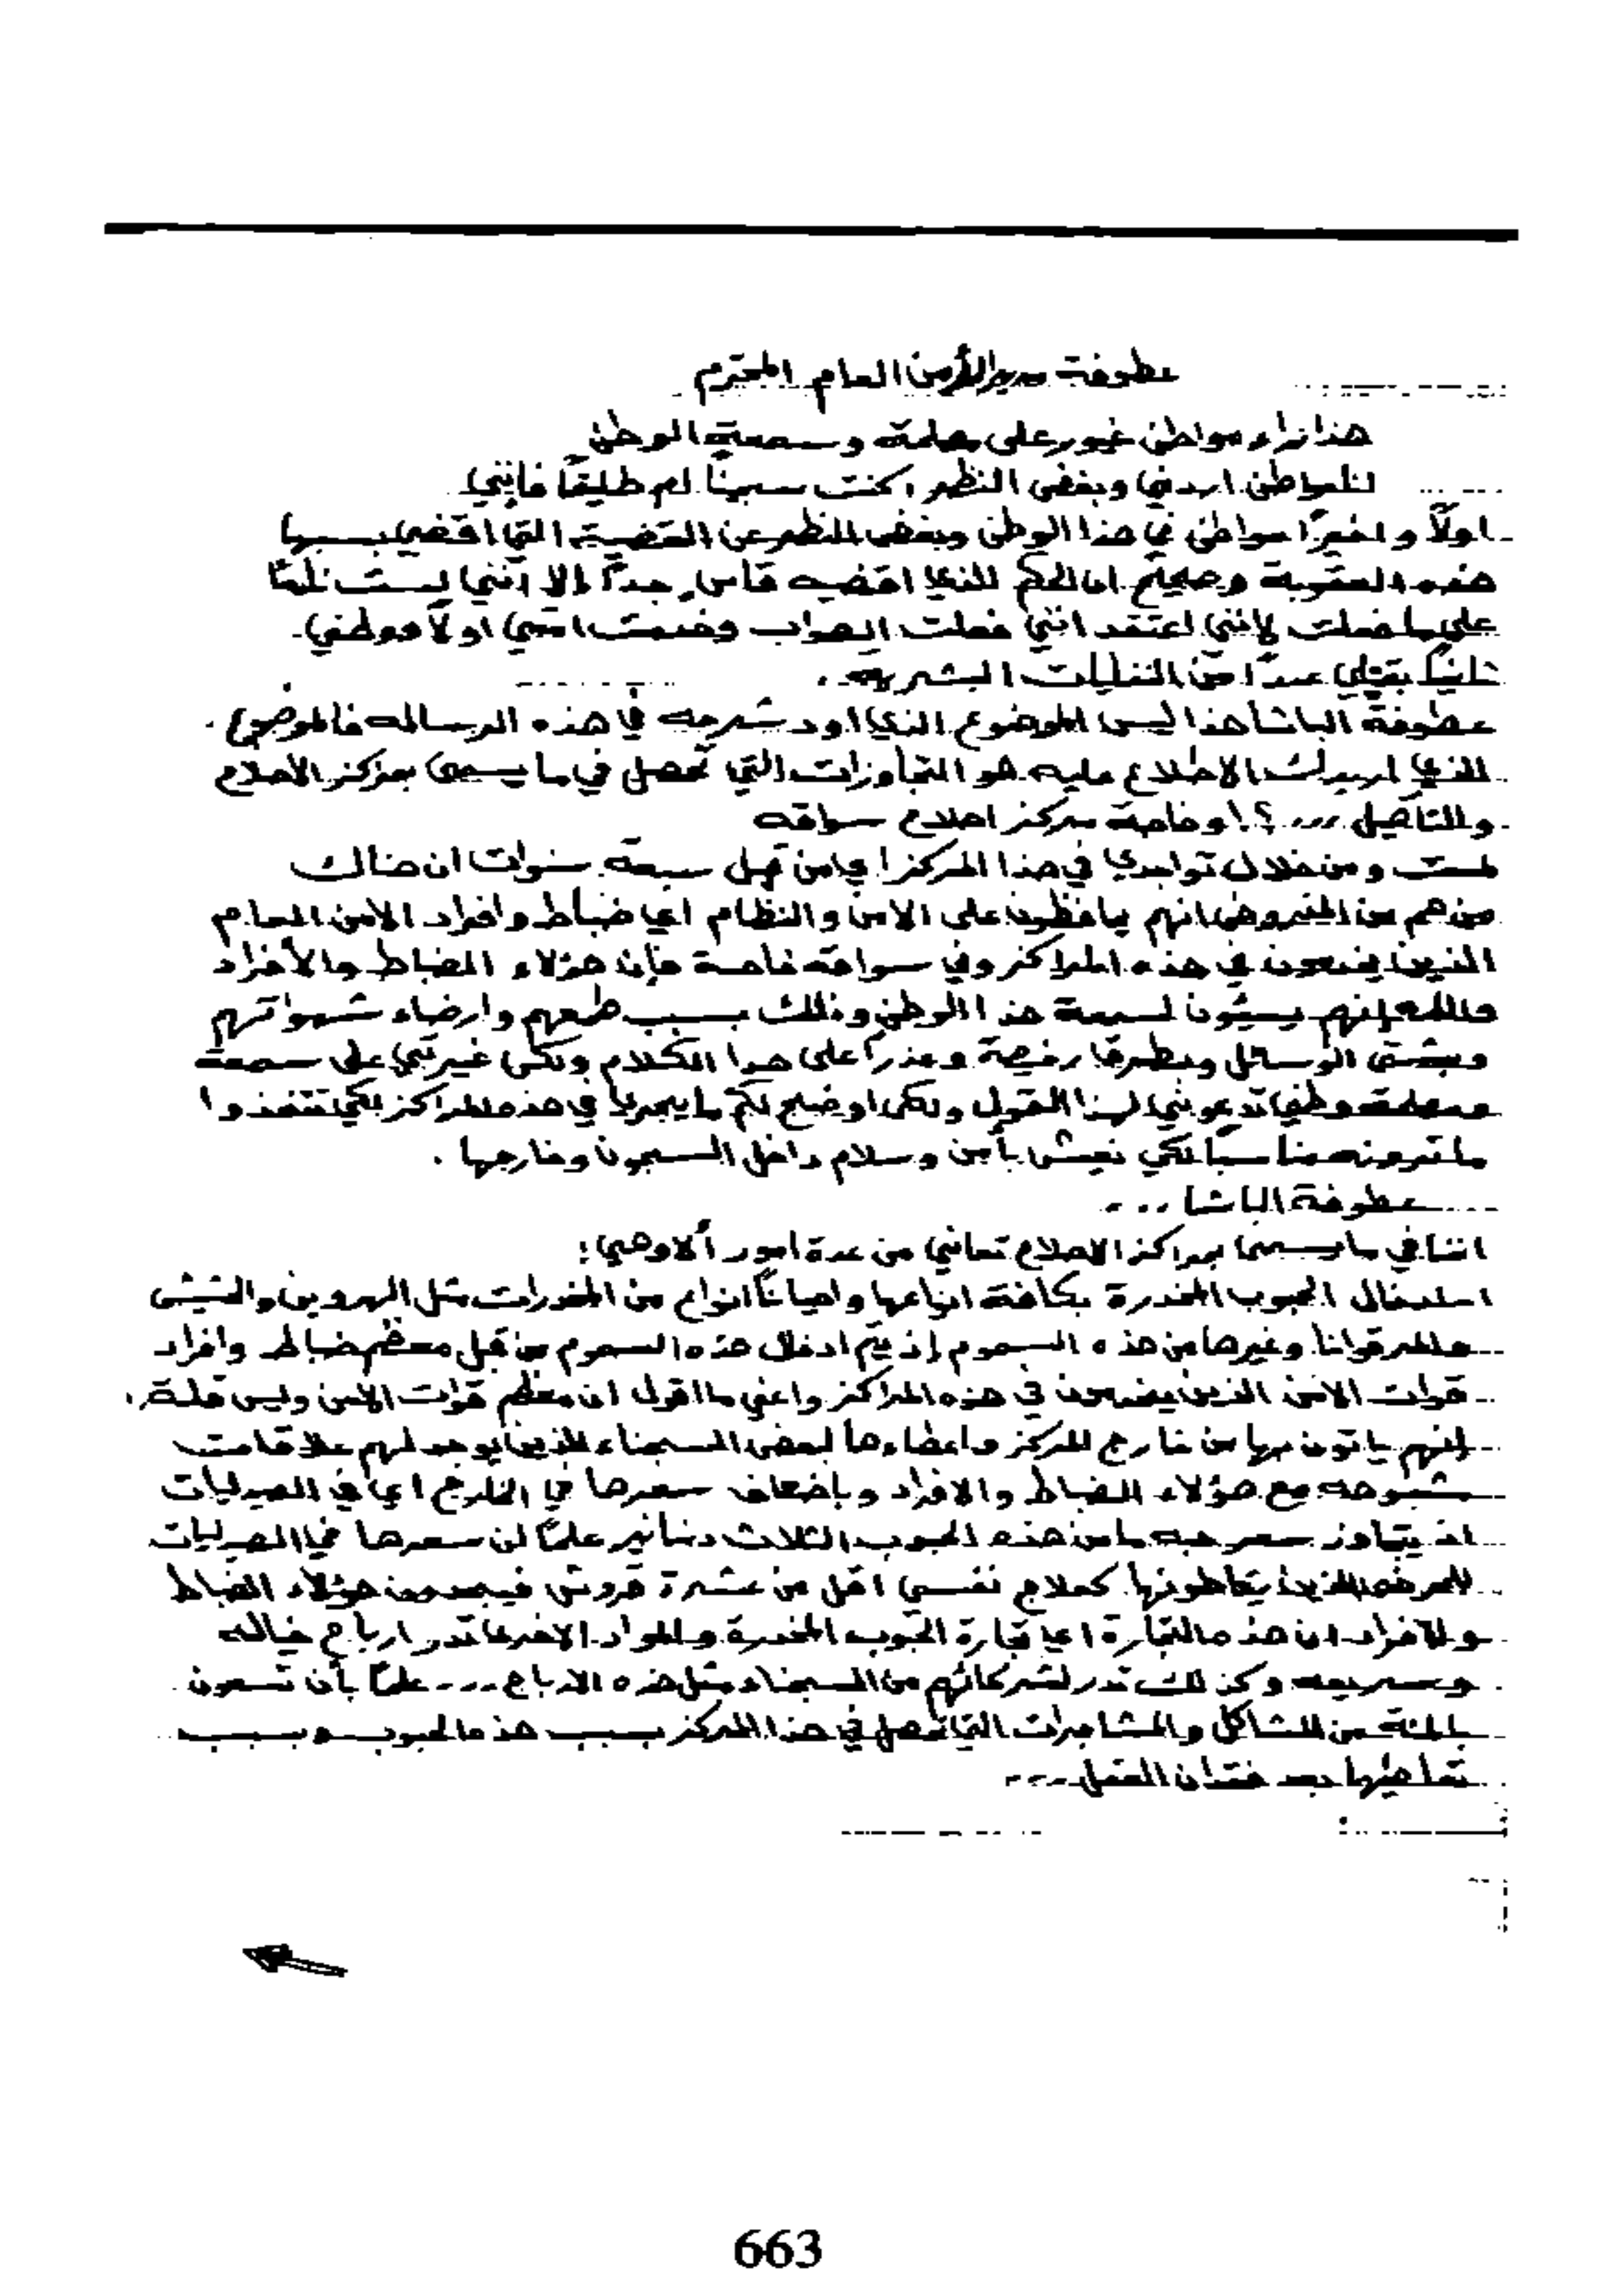 عطوفة مدير الأمن العام المحترم
هذا نداء مواطن غيور على مصلحة وسمعة الوطن
انا مواطن اردني وبغض النظر اكنت سجيناً ام طليقاً فإنني
اولاً واخيراً مواطن في هذا الوطن وبغض النظر عن القضية التي اقضي بسببها
هذه العقوبة وصحيح ان الحكم الذي اقضيه قاسٍ جداً إلا أنني لست نادماً
على ما فعلت لإنني اعتقد انني فعلت الصواب وخدمت امتي اولاً ووطني
ثانياً بقتلي عدداً من النفايات البشريه .
عطوفة الباشا هذا ليس الموضوع الذي اود شرحه في هذه الرساله فالموضوع
الذي اريدك الاطلاع عليه هو التجاوزات التي تحصل في ما يسمى بمراكز الأصلاح
والتأهيل ... ؟! وخاصة مركز اصلاح سواقه
لمست ومن خلال تواجدي في هذا المركز اي من قبل سبعة سنوات ان هنالك
من هم من المفروض انهم يحافظون على الامن والنظام اي ضباط وافراد الامن العام
الذين يخدمون في هذه المراكز وفي سواقه خاصة فإن هؤلاء الضباط والأفراد
والله إنهم يسيئون لسمعة هذا الوطن وذلك بسبب طمعهم وارضاء شهواتهم
وبشتى الوسائل وبطرق رخيصة وعذراً على هذا الكلام ولكن غيرتي على سمعة
ومصلحة وطني تدعوني لهذا القول ولكي اوضح لكم ما يجري في هذه المراكز لكي تتخذوا
ما ترونه مناسباً لكي نعيش بأمن وسلام داخل السجون وخارجها .
عطوفة الباشا ...
اننا في ما يسمى بمراكز الاصلاح نعاني من عدة امور ألا وهي :
استدخال الحبوب المخدرة بكافة انواعها واحياناً انواع من المخدرات مثل الهروين والحشيش
والمرقوانا وغيرها من هذه السموم إذ يتم ادخال هذه السموم من قبل معظم ضباط وافراد
قوات الامن الذين يخدمون في هذه المراكز واعني ما اقول ان معظم قوات الامن وليس قلة .
إنهم ياتون بها من خارج المركز واعطاءها لبعض السجناء الذين يوجد لهم علاقات
مشبوهه مع هؤلاء الضباط والافراد وبإضعاف سعرها في الخارج اي في الصيدليات
اذ يتجاوز سعر حبه ما من هذه الحبوب الثلاث دنانير علماً ان سعرها في الصيدليات
للمرضى الذين يتعاطونها كعلاج نفسي اقل من عشرة قروش فيجدون هؤلاء الضباط
والأفراد ان هذه التجارة اي تجارة الحبوب المخدرة والمواد الاخرى تدر ارباح خياله
وسريعه وكذلك تدر لشركائهم من السجناء مثل هذه الارباح ... علماً بأن تسعون
بالمئة من المشاكل والمشاجرات التي تحصل في هذا المركز بسبب هذه الحبوب وبسبب
تعاطيها بعد فقدان العقل ...
663